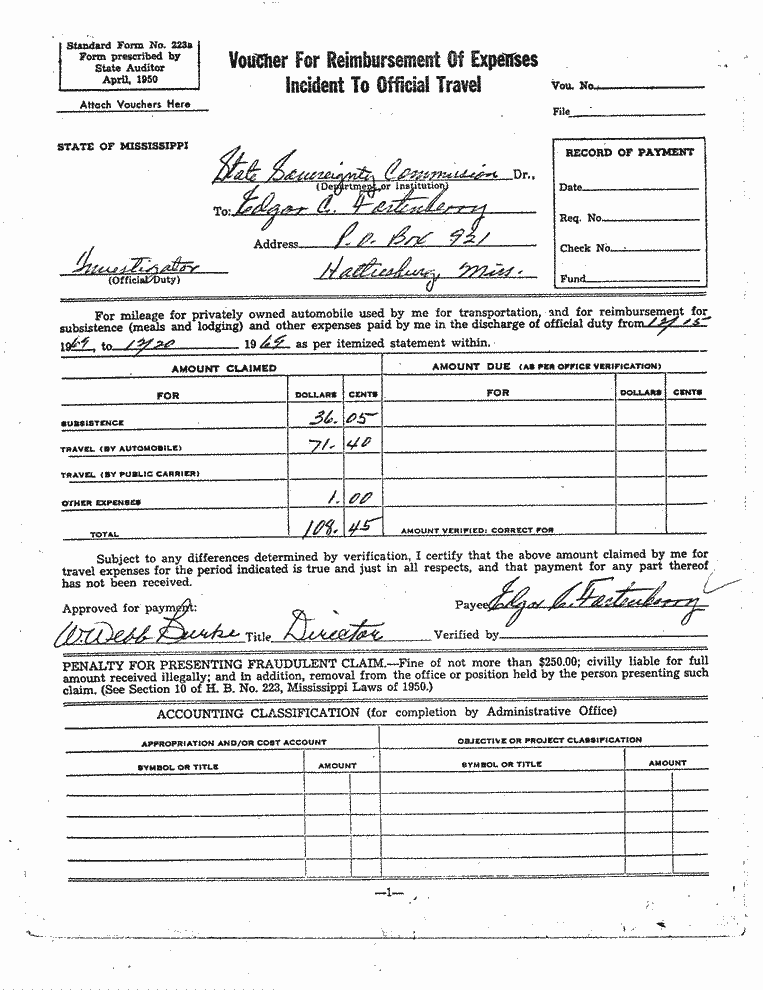 Standard Form No. 223a
Form prescribed by
State Auditor
April, 1950
Attach Vouchers Here
Voucher For Reimbursement Of Expenses
Incident To Official Travel
Vou. No.
File
STATE OF MISSISSIPPI
State Sovereignty Commission Dr.,
(Department or Institution)
To: Edgar C. Fortenberry
Address P.O. Box 921
Investigator Hattiesburg, Miss.
(Official Duty)
RECORD OF PAYMENT
Date
Req. No.
Check No.
Fund
For mileage for privately owned automobile used by me for transportation, and for reimbursement for
subsistence (meals and lodging) and other expenses paid by me in the discharge of official duty from 12/15
1969, to 12/20 1969 as per itemized statement within.
AMOUNT CLAIMED AMOUNT DUE (AS PER OFFICE VERIFICATION)
FOR DOLLARS CENTS FOR DOLLARS CENTS
SUBSISTENCE 36. 05
TRAVEL (BY AUTOMOBILE) 71. 40
TRAVEL (BY PUBLIC CARRIER)
OTHER EXPENSES 1. 00
TOTAL 108. 45 AMOUNT VERIFIED: CORRECT FOR
Subject to any differences determined by verification, I certify that the above amount claimed by me for
travel expenses for the period indicated is true and just in all respects, and that payment for any part thereof
has not been received.
Approved for payment: Payee Edgar C. Fortenberry
W. Webb Burke Title Director Verified by
PENALTY FOR PRESENTING FRAUDULENT CLAIM.--Fine of not more than $250.00; civilly liable for full
amount received illegally; and in addition, removal from the office or position held by the person presenting such
claim. (See Section 10 of H. B. No. 223, Mississippi Laws of 1950.)
ACCOUNTING CLASSIFICATION (for completion by Administrative Office)
APPROPRIATION AND/OR COST ACCOUNT OBJECTIVE OR PROJECT CLASSIFICATION
SYMBOL OR TITLE AMOUNT SYMBOL OR TITLE AMOUNT
—1—